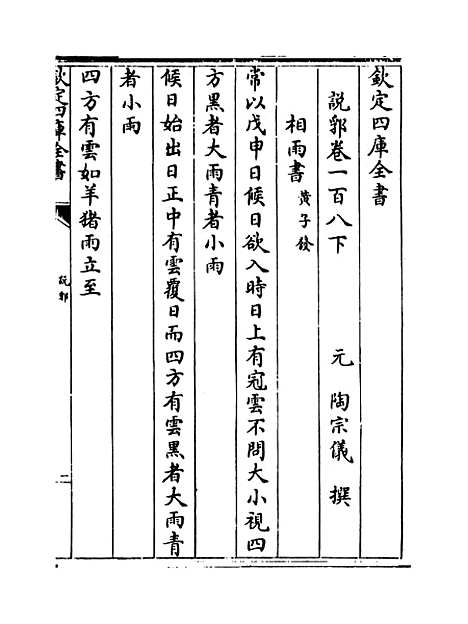 欽定四庫全書
說郛卷一百八下
元 陶宗儀 撰
相雨書 黃子發
常以戊申日候日欲入時日上有冠雲不問大小視四
方黑者大雨青者小雨
候日始出日正中有雲覆日而四方有雲黑者大雨青
者小雨
四方有雲如羊猪雨立至
欽定四庫全書
說郛